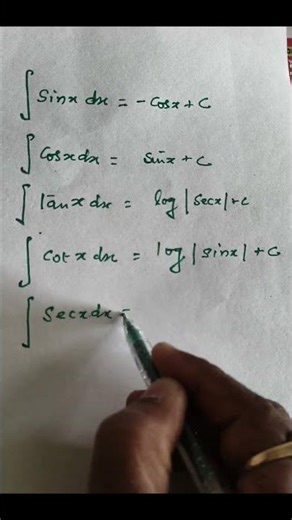 ∫ Sinx dx = -Cosx + C
∫ Cosx dx = sinx + C
∫ Tanx dx = log |secx| + C
∫ Cot x dx = log |sinx| + C
∫ Secx dx =